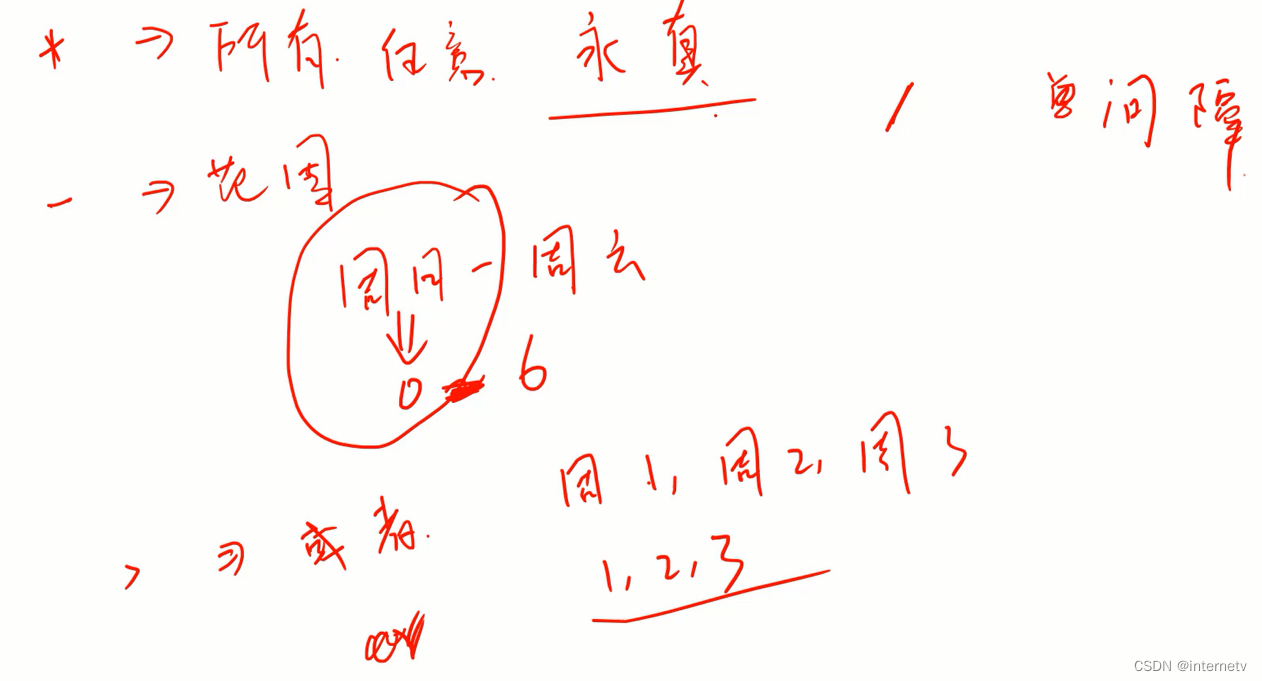 * ⇒ 所有. 任意. 永真
/ 间隔
- ⇒ 范围
周日 - 周六
0 - 6
周1, 周2, 周3
, ⇒ 或者.
1, 2, 3
CSDN @internetv